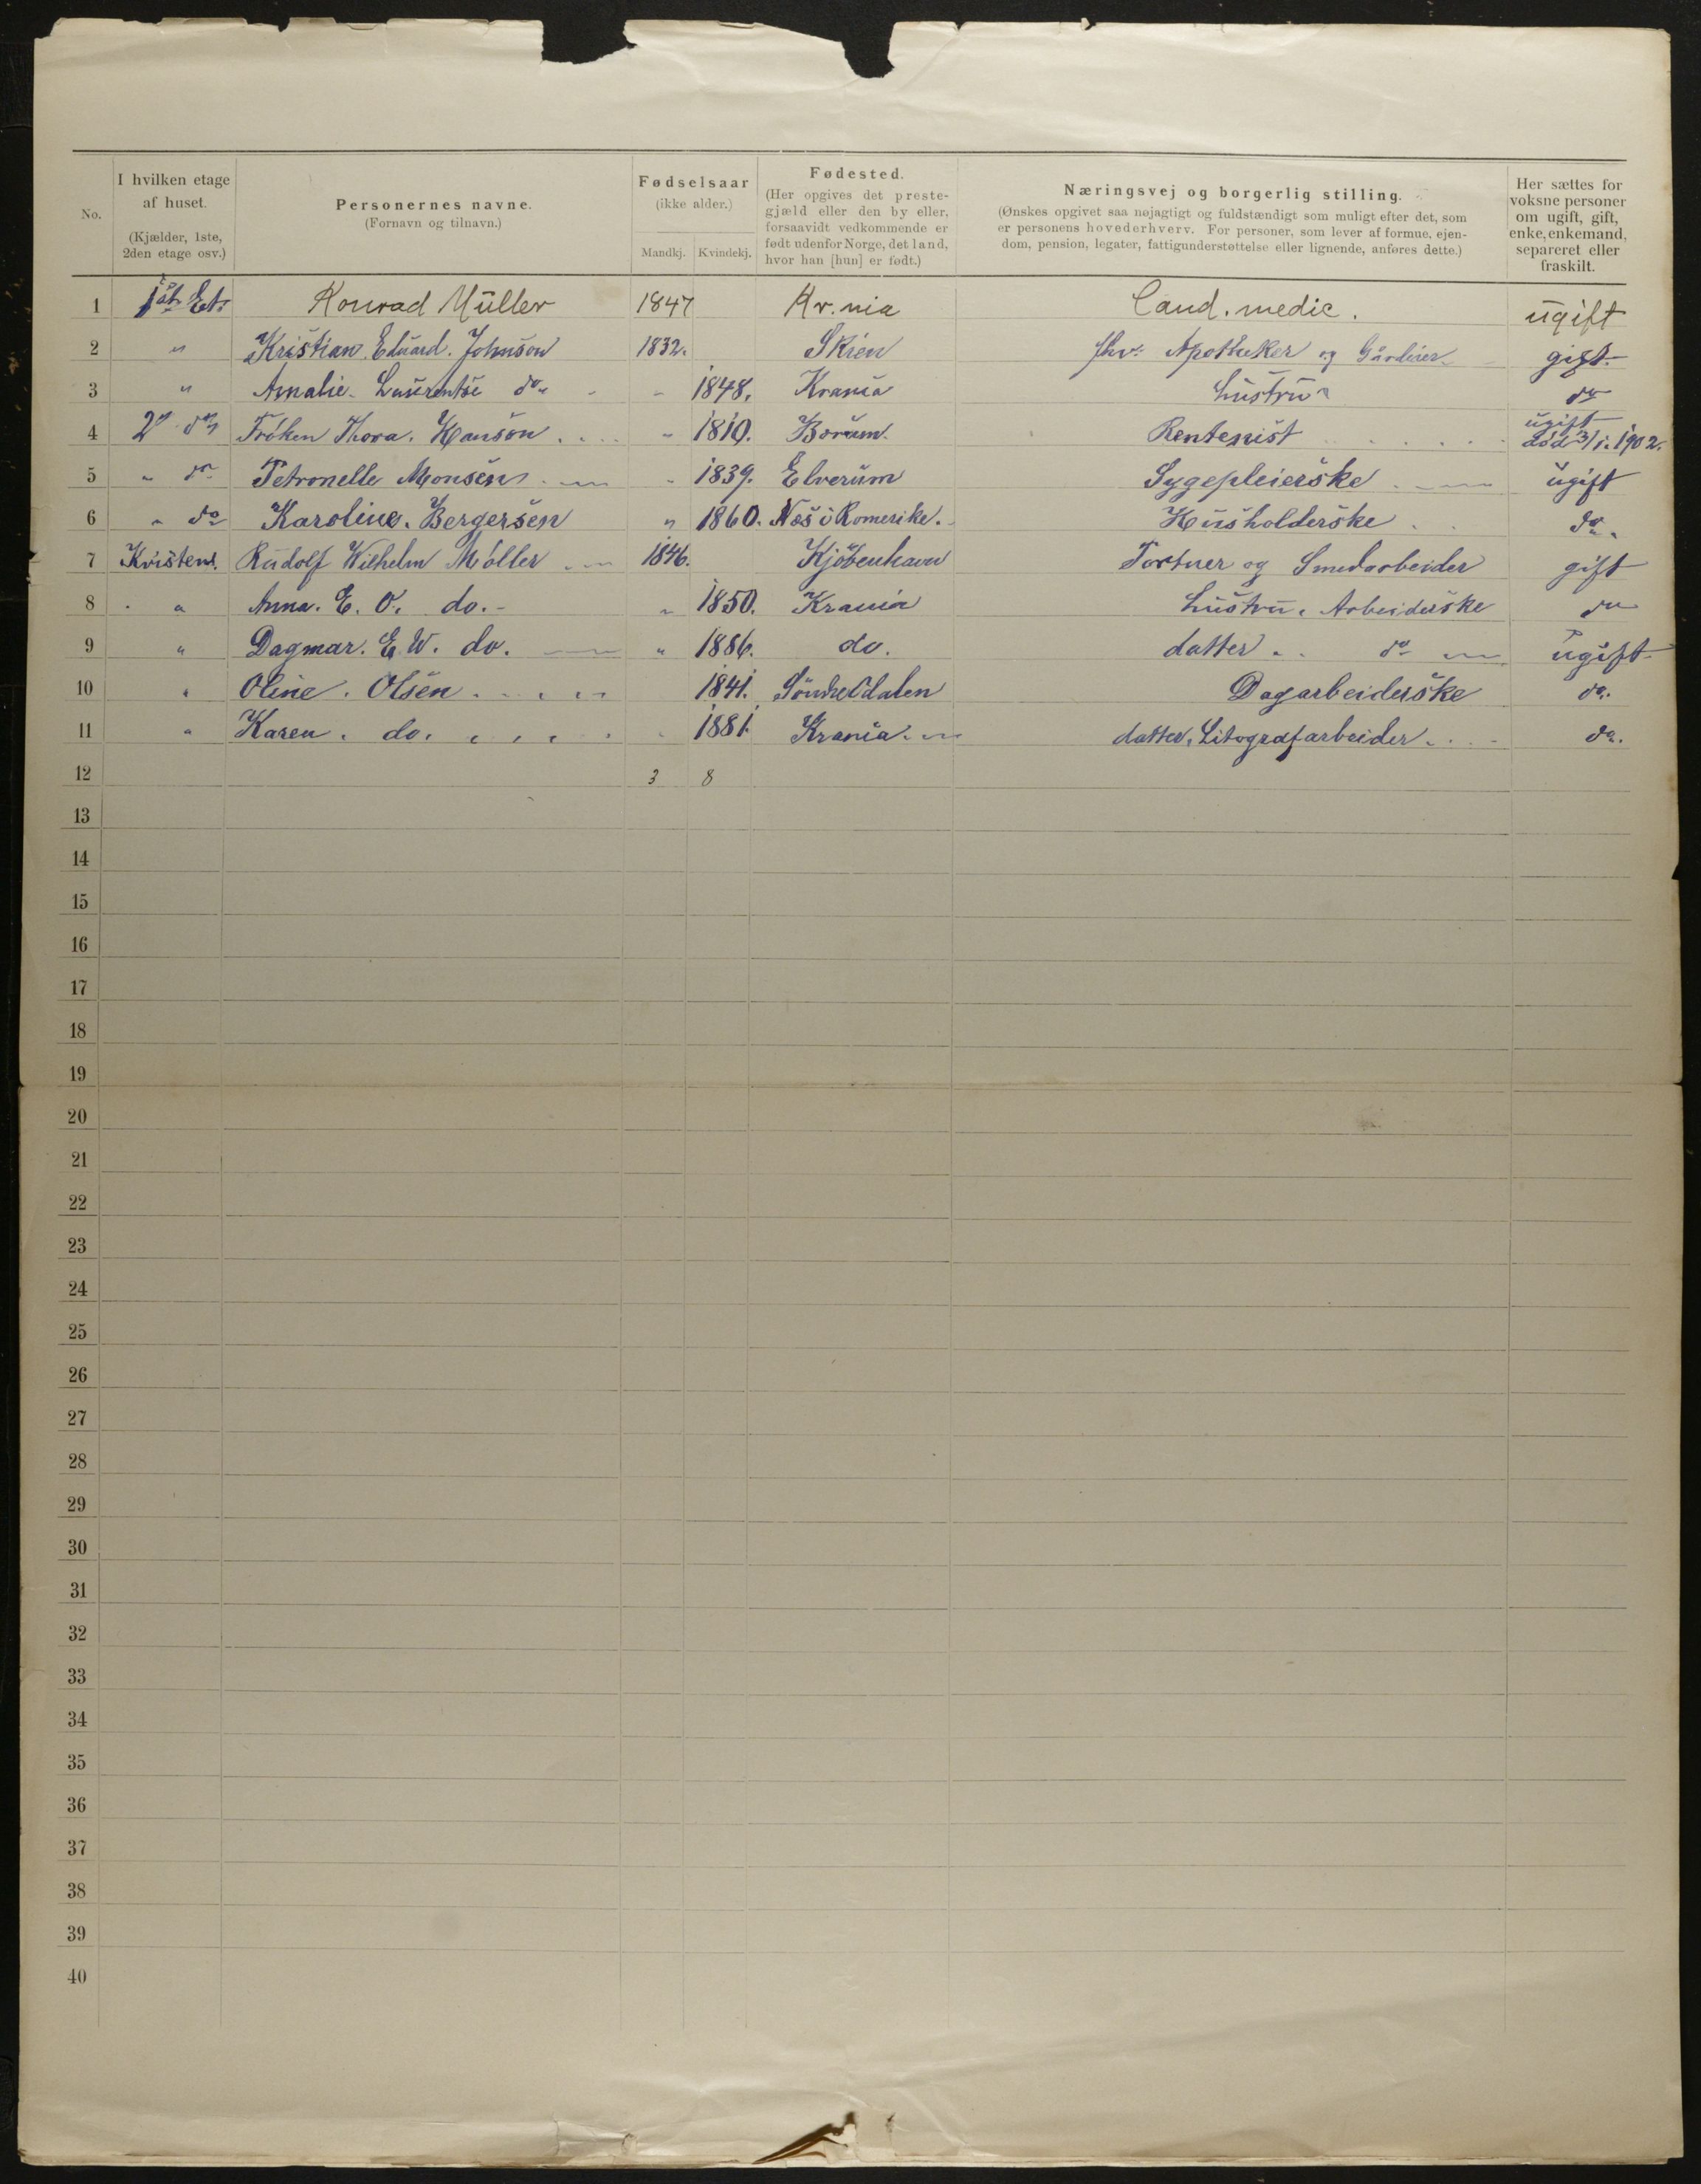 No.
I hvilken etage af huset.
(Kjælder, 1ste, 2den etage osv.)
Personernes navne.
(Fornavn og tilnavn.)
Fødselsaar
(ikke alder.)
Mandkj. Kvindekj.
Fødested.
(Her opgives det preste-
gjæld eller den by eller,
forsaavidt vedkommende er
født udenfor Norge, det land,
hvor han [hun] er født.)
Næringsvej og borgerlig stilling.
(Ønskes opgivet saa nøjagtigt og fuldstændigt som muligt efter det, som
er personens hovederhverv. For personer, som lever af formue, ejen-
dom, pension, legater, fattigunderstøttelse eller lignende, anføres dette.)
Her sættes for
voksne personer
om ugift, gift,
enke, enkemand,
separeret eller
fraskilt.
1 1st Et. Konrad Müller 1847 Kr.nia Cand. medic. ugift
2 " Kristian Eduard Johnson 1832. Skien fhv: Apotheker og Gårdeier gift
3 " Amalie Laurentse do 1848. Krania Hustru do
4 2 do Frøken Thora. Hanson " 1810. Bærum Rentenist ugift død 3/1. 1902.
5 " do Petronelle Monsen " 1839. Elverum Sygepleierske ugift
6 " do Karoline. Bergersen " 1860. Næs i Romerike. Husholderske do.
7 Kvisten. Rudolf Wilhelm Møller 1846. Kjöbenhavn Portner og Smedarbeider gift
8 " Anna. E. O. do. " 1850. Krania Hustru, Arbeiderske do
9 " Dagmar. E. W. do. " 1886. do. datter do ugift
10 " Oline. Olsen 1841. Dagarbeiderske do.
11 " Karen. do. 1881. Krania datter, Litografarbeider do.
12 3 8
13
14
15
16
17
18
19
20
21
22
23
24
25
26
27
28
29
30
31
32
33
34
35
36
37
38
39
40